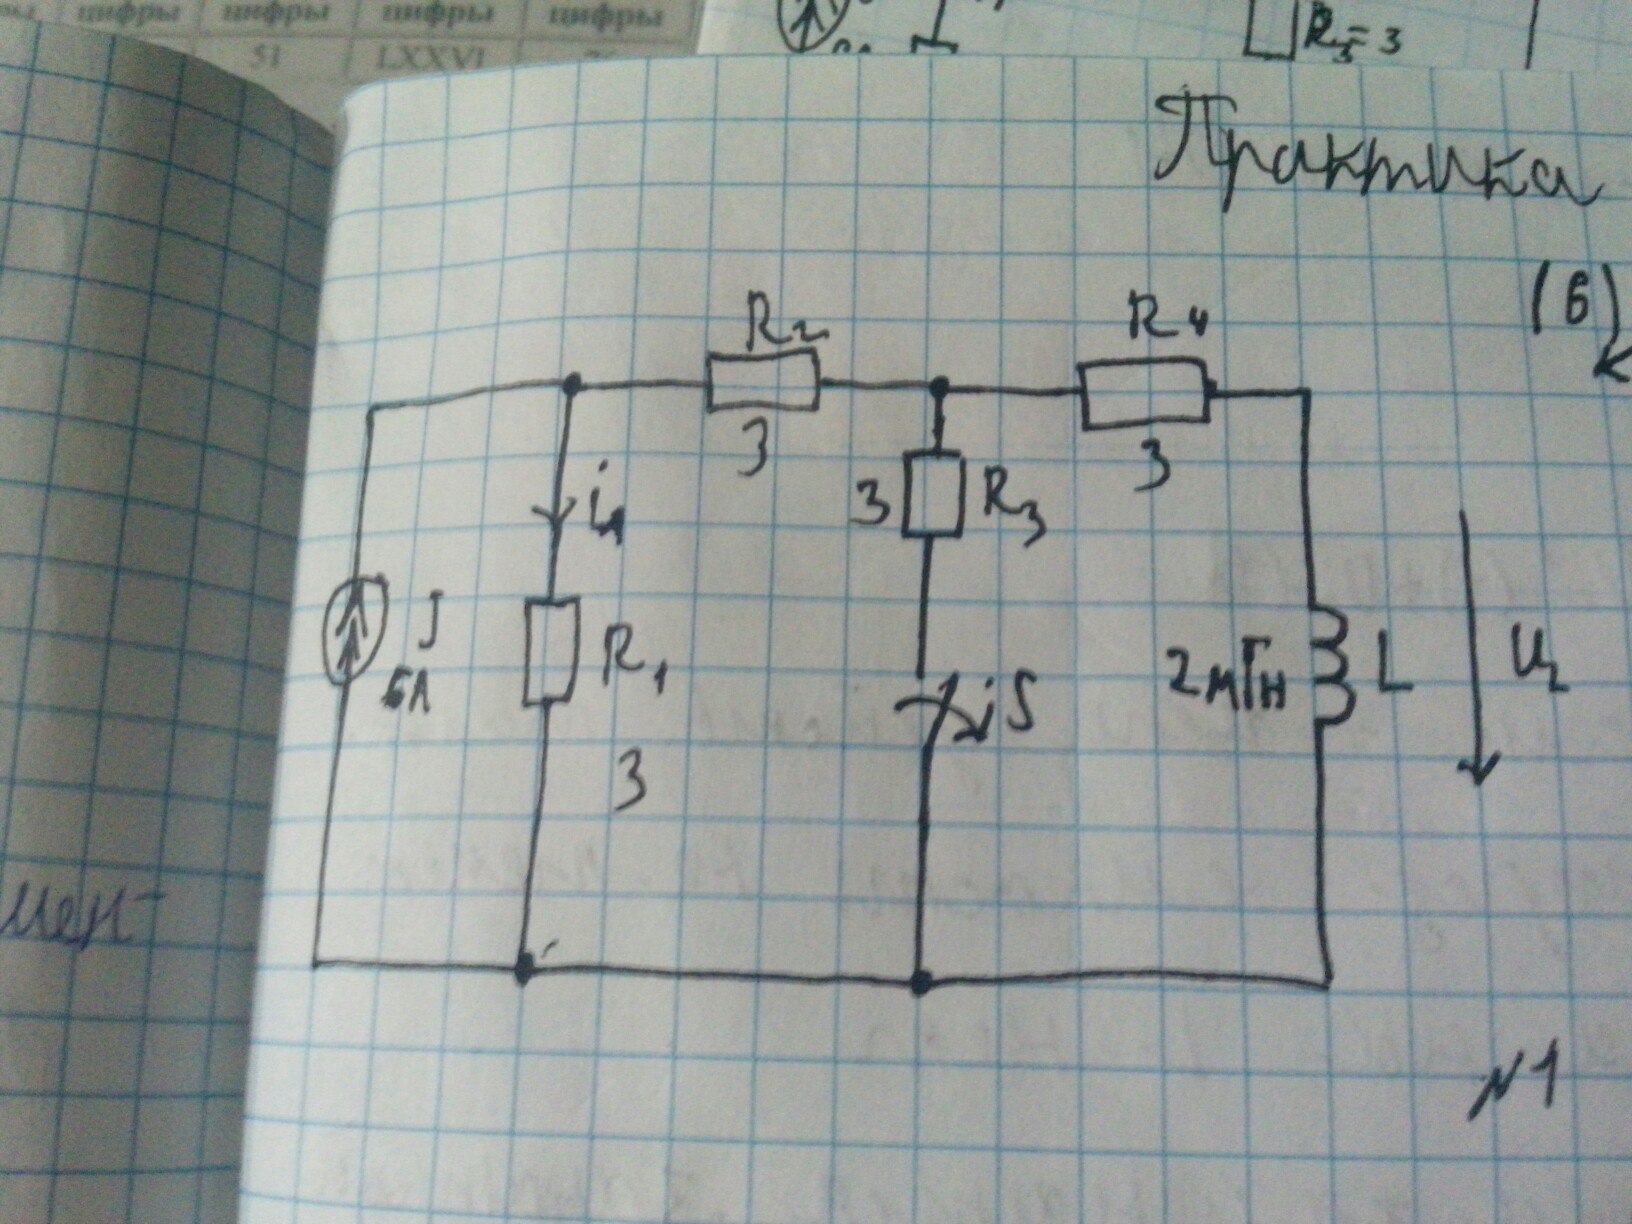 цифры цифры цифры цифры
51 LXXVI
R₃=3
Практика
(в)
R₂
R₄
3
3
3 R₃
i₁
J
R₁
S
2мГн
L
U_L
3
мен-
№1